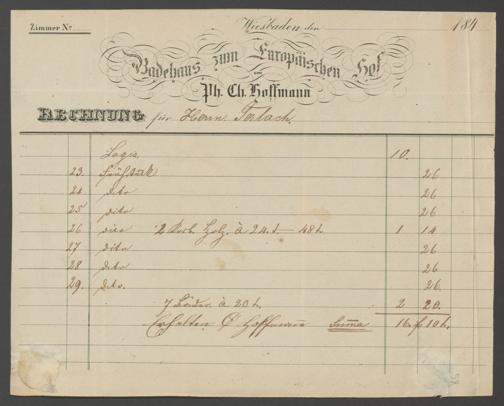 Zimmer Nº
Wiesbaden den 184
Badehaus zum Europäischen Hof
von
Ph. Ch. Hoffmann
RECHNUNG für Herrn
Logis 10.
23. Frühstück 26
24 dito 26
25 dito 26
26 dito 2 Korb Holz. à 24. – 48 1 14
27 dito 26
28 dito 26
29. dito. 26.
7 Bäder à 20 2 20.
Erhalten Hoffmann Summa 16. f 10